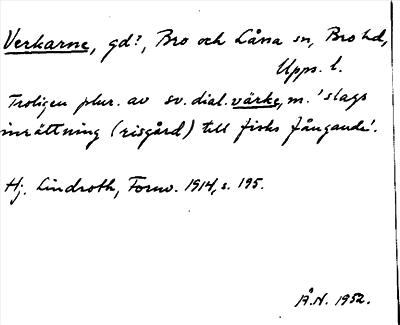 Verkarne, gd?, Bro och Låssa sn, Bro hd,
Upps. l.
Troligen plur. av sv. dial. värke, m. 'slags
inrättning (risgård) till fisks fångande'.
Hj. Lindroth, Fornv. 1914, s. 195.
Å.N. 1952.